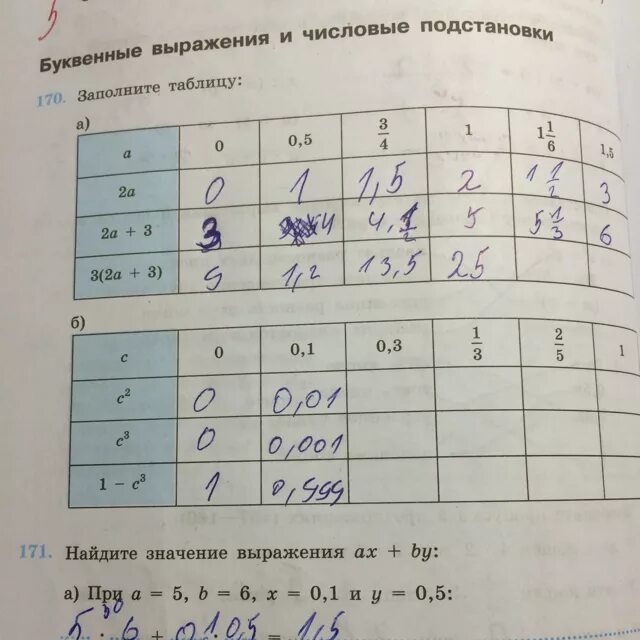 5
Буквенные выражения и числовые подстановки
170. Заполните таблицу:
а)
a 0 0,5 3/4 1 1 1/6 1,5
2a 0 1 1,5 2 1 1/2 3
2a + 3 3 4 4,1/2 5 5 1/3 6
3(2a + 3) 9 1,2 13,5 25
б)
c 0 0,1 0,3 1/3 2/5 1
c² 0 0,01
c³ 0 0,001
1 − c³ 1 0,999
171. Найдите значение выражения ax + by:
а) При a = 5, b = 6, x = 0,1 и y = 0,5:
30
5 · 6 + 0,1 0,5 = 1,5